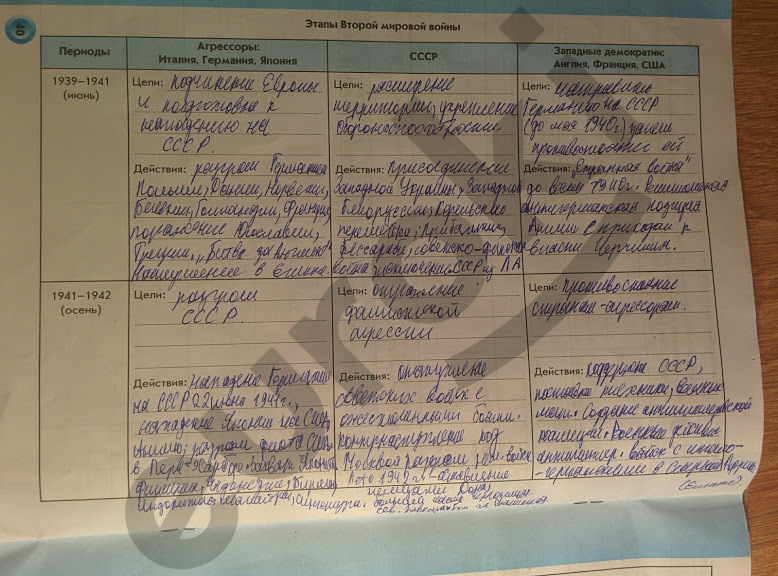 40
Этапы Второй мировой войны
Периоды
Агрессоры:
Италия, Германия, Япония
СССР
Западные демократии:
Англия, Франция, США
1939–1941
(июнь)
Цели: подчинение Европы
и подготовка к
нападению на
СССР.
Действия: разгром Германией
Польши, Дании, Норвегии,
Бельгии, Голландии, Франции,
Югославии,
Греции, „Битва за Англию"
в Египет.
Цели: расширение
территории, укрепление
обороноспособности.
Действия: Присоединение
Западной Украины, Западной
Белоруссии, Карельского
перешейка, Прибалтики,
Бессарабии, советско-финская
война, исключение СССР из ЛН
Цели: направить
Германию на СССР
(до мая 1940г.), затем
противостояние ей
Действия: „Странная война"
до весны 1940г.
антигерманская позиция
Англии с приходом к
власти Черчилля.
1941–1942
(осень)
Цели: разгром
СССР.
Действия: нападение Германии
на СССР 22 июня 1941г.,
нападение Японии на США,
Англию; разгром флота США
в Перл-Харборе, захват Японией
Филиппин, Индонезии, Бирмы,
Индокитая, Сингапура.
Цели: отражение
фашистской
агрессии
Действия: отступление
советских войск с
ожесточенными боями.
контрнаступление под
Москвой разгром нем. войск
Лето 1942г. - оставление
немцами
Цели: противостояние
странам-агрессорам.
Действия: поддержка СССР,
поставка техники, военной
Создание антигитлеровской
коалиции. Военные действия
войск с итало-
-германскими в Северной Африке
(Египте)